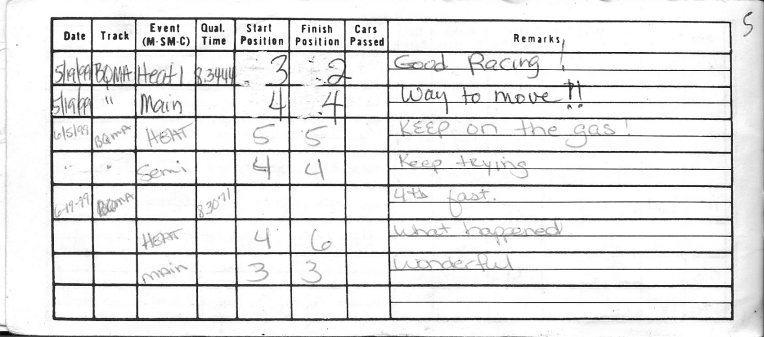 5
Date Track Event (M-SM-C) Qual. Time Start Position Finish Position Cars Passed Remarks
5/19/99 BQMA Heat 1 8.3444 3 2 Good Racing!
5/19/99 " Main 4 4 Way to move!!
6/5/99 BQMA HEAT 5 5 KEEP on the gas!
" " Semi 4 4 Keep trying
6-19-99 BQMA 8.3071 4th fast.
HEAT 4 6 What happened
main 3 3 Wonderful